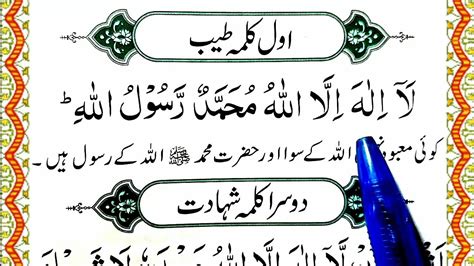 اول کلمہ طیب
لَآ اِلٰهَ اِلَّا اللّٰهُ مُحَمَّدٌ رَّسُوْلُ اللّٰهِ ؕ
کوئی معبود اللہ کے سوا اور حضرت محمد ﷺ اللہ کے رسول ہیں۔
دوسرا کلمہ شہادت
اِلٰهَ اِلَّا اللّٰهُ